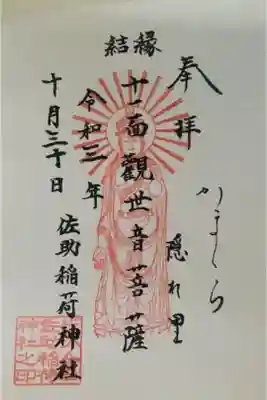 奉拝
かまくら
隠れ里
縁結
十一面観世音菩薩
令和三年
十月三十日
佐助稲荷神社